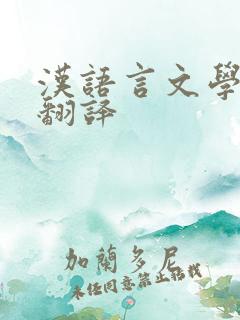 漢語言文學
翻譯
加蘭多尼
未經同意禁止轉載